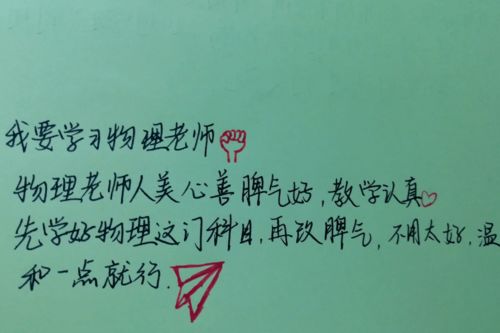 我要学习物理老师
物理老师人美心善脾气好,教学认真
先学好物理这门科目,再改脾气,不用太好,温
和一点就行.